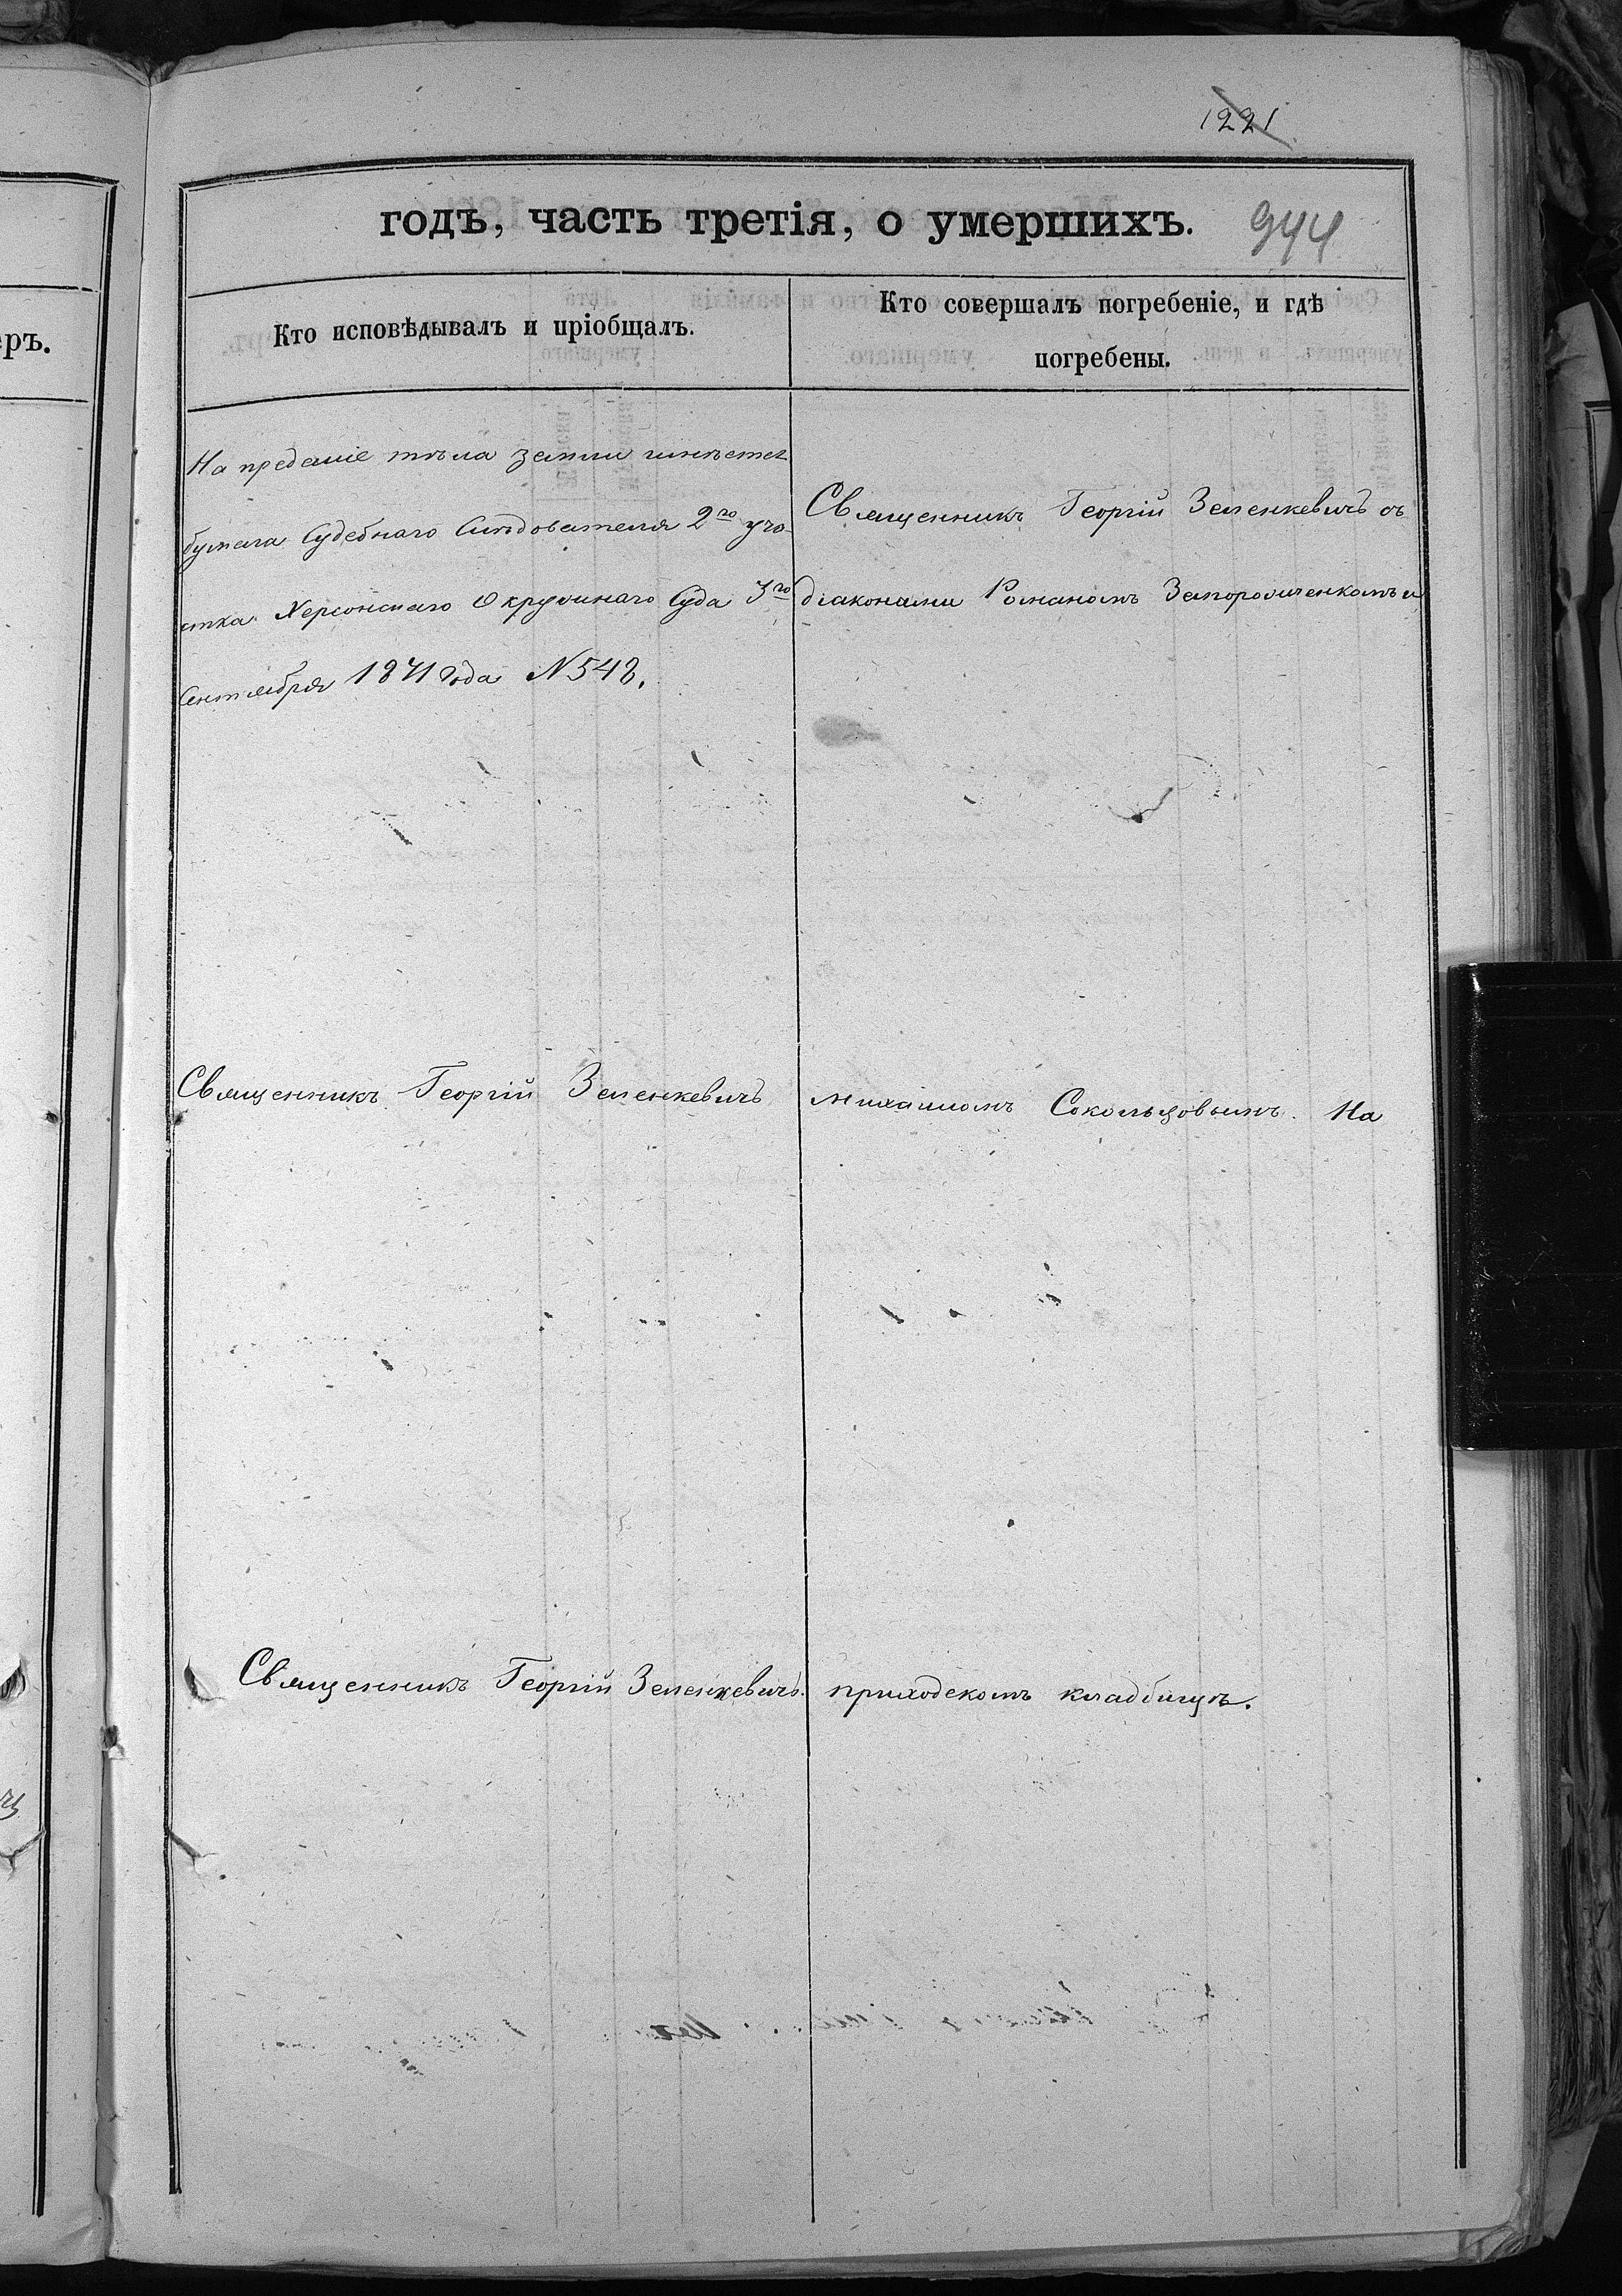 1221
годъ, часть третія, о умершихъ. 944
Кто исповѣдывалъ и пріобщалъ.
Кто совершалъ погребеніе, и гдѣ
погребены.
На преданіе тѣла земли имѣется
бумага Судебнаго Слѣдователя 2го уча-
стка Херсонскаго Окружнаго Суда 3го
Сентября 1871 года N 548.
Священникъ Георгій Зеленкевичъ съ
діаконами Романомъ Запорожченкомъ и
Священникъ Георгій Зеленкевичъ
Михаиломъ Сокольцовымъ. На
Священникъ Георгій Зеленкевичъ.
приходскомъ кладбищѣ.
ръ.